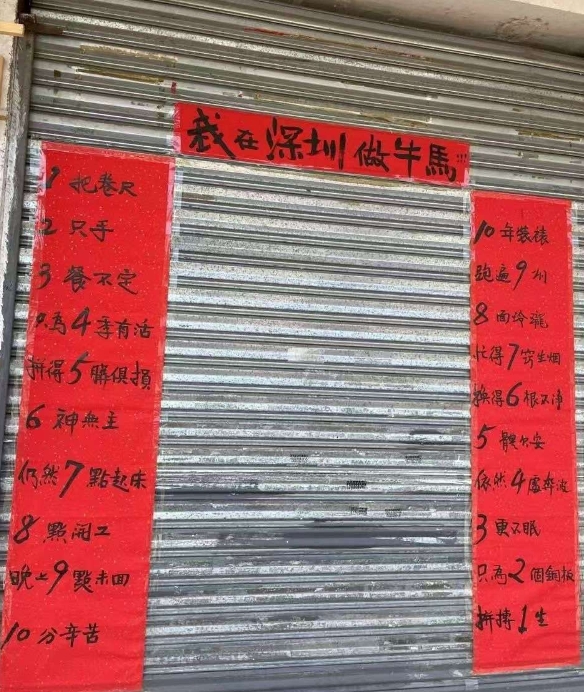 我在深圳做牛馬!!!
1把卷尺
2只手
3餐不定
只為4季有活
拼得5臟俱損
6神無主
仍然7點起床
8點開工
晚上9點未回
10分辛苦
10年裝裱
跑遍9州
8面玲瓏
忙得7窍生烟
換得6根不净
5臟不安
依然4處奔波
3更不眠
只為2個銅板
拼搏1生